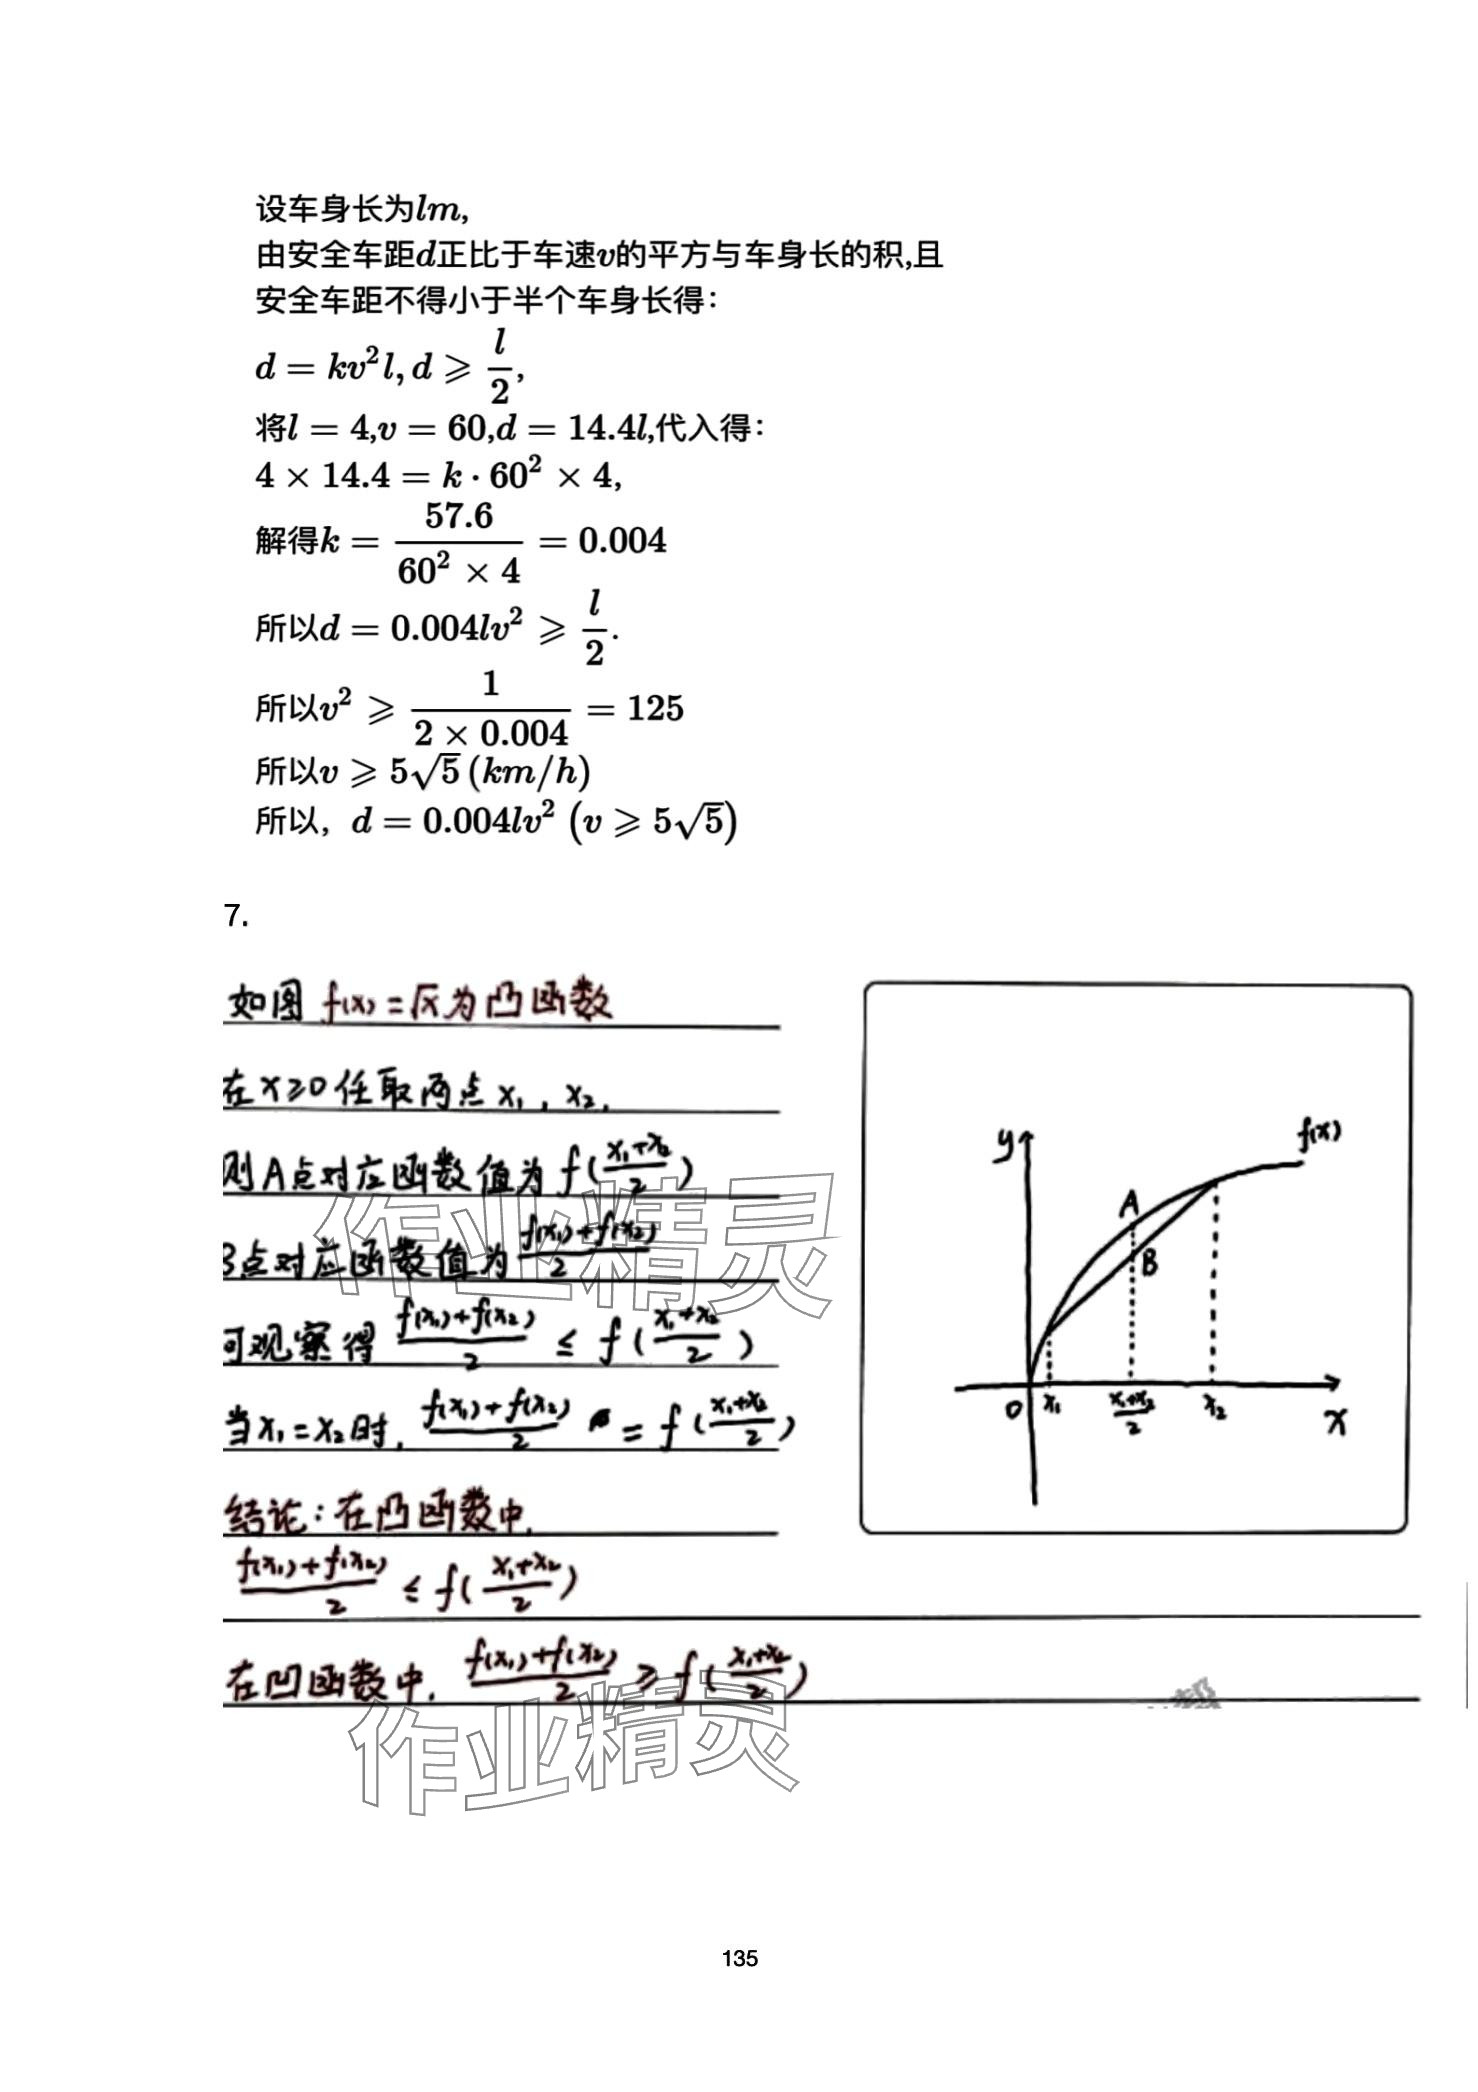 设车身长为lm,
由安全车距d正比于车速v的平方与车身长的积,且
安全车距不得小于半个车身长得：
d = kv²l, d ⩾ l/2,
将l = 4,v = 60,d = 14.4l,代入得：
4 × 14.4 = k · 60² × 4,
解得k = 57.6/(60² × 4) = 0.004
所以d = 0.004lv² ⩾ l/2.
所以v² ⩾ 1/(2 × 0.004) = 125
所以v ⩾ 5√5 (km/h)
所以，d = 0.004lv² (v ⩾ 5√5)
7.
如图 f(x) = √x 为凸函数
在 x≥0 任取两点 x₁, x₂,
则A点对应函数值为 f((x₁+x₂)/2)
B点对应函数值为 (f(x₁)+f(x₂))/2
可观察得 (f(x₁)+f(x₂))/2 ≤ f((x₁+x₂)/2)
当x₁=x₂时, (f(x₁)+f(x₂))/2 = f((x₁+x₂)/2)
结论：在凸函数中,
(f(x₁)+f(x₂))/2 ≤ f((x₁+x₂)/2)
在凹函数中, (f(x₁)+f(x₂))/2 ≥ f((x₁+x₂)/2)
y
f(x)
A
B
O
x₁
(x₁+x₂)/2
x₂
x
作业精灵
作业精灵
135